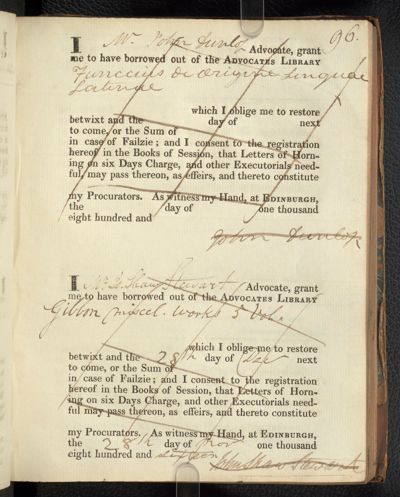 96.
I Mr. John Dunlop Advocate, grant
me to have borrowed out of the ADVOCATES LIBRARY
Funccius de origine Linguae
Latinae
which I oblige me to restore
betwixt and the day of next
to come, or the Sum of
in case of Failzie; and I consent to the registration
hereof in the Books of Session, that Letters of Horn-
ing on six Days Charge, and other Executorials need-
ful, may pass thereon, as effeirs, and thereto constitute
my Procurators. As witness my Hand, at EDINBURGH,
the day of one thousand
eight hundred and
John Dunlop
I Mr. Shaw Stewart Advocate, grant
me to have borrowed out of the ADVOCATES LIBRARY
Gibbon miscel. works 5 Vol.
which I oblige me to restore
betwixt and the 28th day of next
to come, or the Sum of
in case of Failzie; and I consent to the registration
hereof in the Books of Session, that Letters of Horn-
ing on six Days Charge, and other Executorials need-
ful may pass thereon, as effeirs, and thereto constitute
my Procurators. As witness my Hand, at EDINBURGH,
the 28th day of Nov one thousand
eight hundred and sixteen
John Shaw Stewart